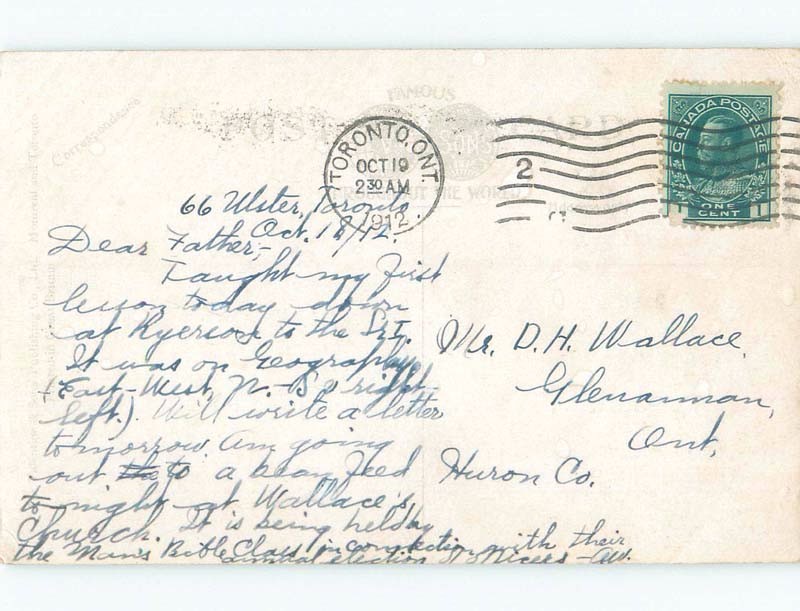 Correspondence
POST CARD
FAMOUS
THROUGHOUT THE WORLD
TORONTO, ONT.
OCT 19
2 30 AM
1912
2
CANADA POSTAGE
1 ONE CENT 1
66 Ulster, Toronto
Oct. 18/12.
Dear Father,-
Taught my first
lesson today down
at Ryerson to the
It was on Geography
(East-West, N.-S & right
left.) Will write a letter
tomorrow. Am going
out to a bean feed
to-night at Wallace's
Church. It is being held by
the Men's Bible Class in connection with their
annual election of officers -
Mr. D. H. Wallace,
Glenannan,
Ont,
Huron Co.